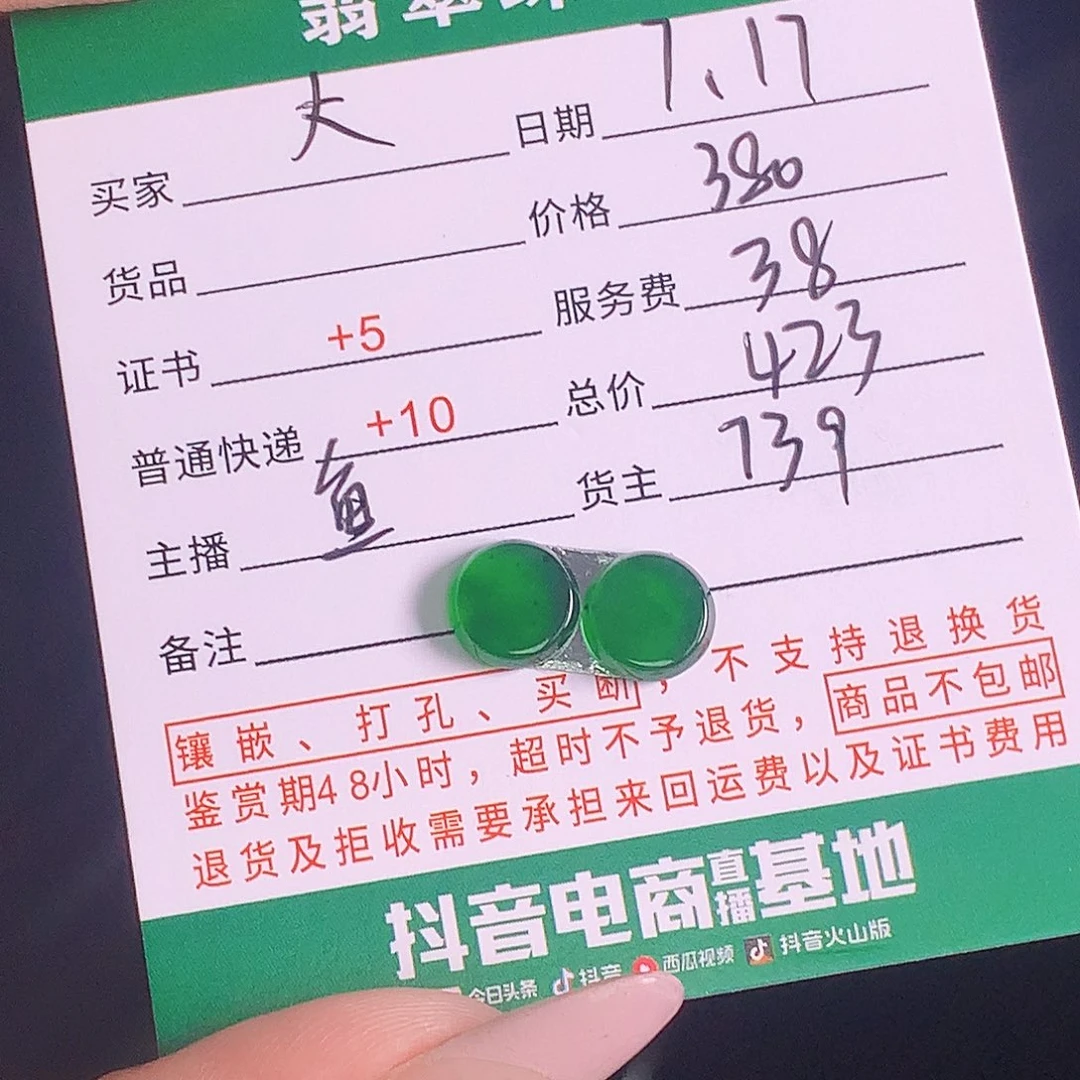 翡翠
买家 大 日期 7.17
货品 价格 380
证书 +5 服务费 38
普通快递 +10 总价 423
主播 鱼 货主 739
备注
镶嵌、打孔、买断，不支持退换货
鉴赏期48小时，超时不予退货，商品不包邮
退货及拒收需要承担来回运费以及证书费用
抖音电商直播基地
今日头条 抖音 西瓜视频 抖音火山版